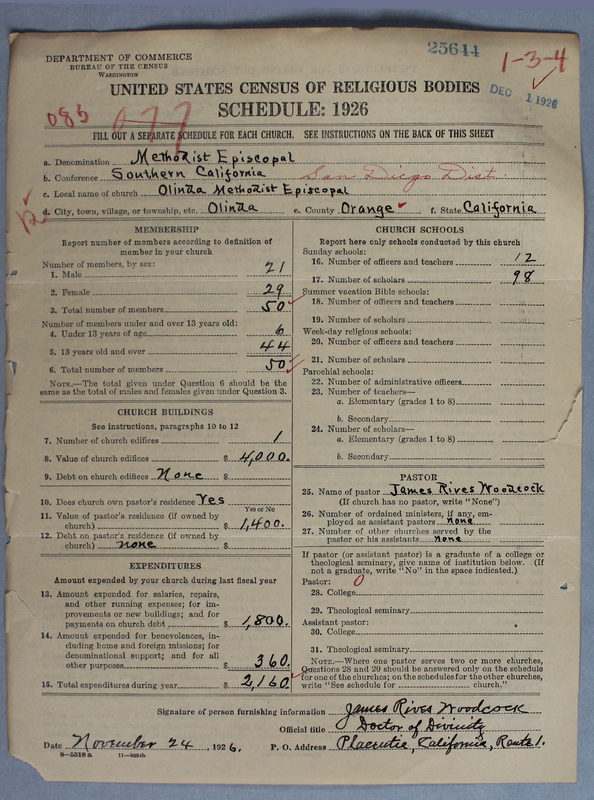 25644
1-3-4
DEPARTMENT OF COMMERCE
BUREAU OF THE CENSUS
WASHINGTON
DEC 1 1926
UNITED STATES CENSUS OF RELIGIOUS BODIES
SCHEDULE: 1926
085 077
FILL OUT A SEPARATE SCHEDULE FOR EACH CHURCH. SEE INSTRUCTIONS ON THE BACK OF THIS SHEET
a. Denomination Methodist Episcopal
b. Conference Southern California San Diego Dist.
c. Local name of church Olinda Methodist Episcopal
12
d. City, town, village, or township, etc. Olinda e. County Orange f. State California
MEMBERSHIP
Report number of members according to definition of
member in your church
Number of members, by sex:
1. Male 21
2. Female 29
3. Total number of members 50
Number of members under and over 13 years old:
4. Under 13 years of age 6
5. 13 years old and over 44
6. Total number of members 50
NOTE.—The total given under Question 6 should be the
same as the total of males and females given under Question 3.
CHURCH BUILDINGS
See instructions, paragraphs 10 to 12
7. Number of church edifices 1
8. Value of church edifices $ 4,000.
9. Debt on church edifices None $
10. Does church own pastor's residence Yes
Yes or No
11. Value of pastor's residence (if owned by
church) $ 1,400.
12. Debt on pastor's residence (if owned by
church) none $
EXPENDITURES
Amount expended by your church during last fiscal year
13. Amount expended for salaries, repairs,
and other running expenses; for im-
provements or new buildings; and for
payments on church debt $ 1,800.
14. Amount expended for benevolences, in-
cluding home and foreign missions; for
denominational support; and for all
other purposes $ 360.
15. Total expenditures during year $ 2,160
CHURCH SCHOOLS
Report here only schools conducted by this church
Sunday schools:
16. Number of officers and teachers 12
17. Number of scholars 98
Summer vacation Bible schools:
18. Number of officers and teachers
19. Number of scholars
Week-day religious schools:
20. Number of officers and teachers
21. Number of scholars
Parochial schools:
22. Number of administrative officers
23. Number of teachers—
a. Elementary (grades 1 to 8)
b. Secondary
24. Number of scholars—
a. Elementary (grades 1 to 8)
b. Secondary
PASTOR
25. Name of pastor James Rives Woodcock
(If church has no pastor, write "None")
26. Number of ordained ministers, if any, em-
ployed as assistant pastors none
27. Number of other churches served by the
pastor or his assistants none
If pastor (or assistant pastor) is a graduate of a college or
theological seminary, give name of institution below. (If
not a graduate, write "No" in the space indicated.)
Pastor: 0
28. College
29. Theological seminary
Assistant pastor:
30. College
31. Theological seminary
NOTE.—Where one pastor serves two or more churches,
Questions 28 and 29 should be answered only on the schedule
for one of the churches; on the schedules for the other churches,
write "See schedule for church."
Signature of person furnishing information James Rives Woodcock
Official title Doctor of Divinity
Date November 24, 1926. P. O. Address Placentia, California, Route 1.
8—5518 a 11—9554b